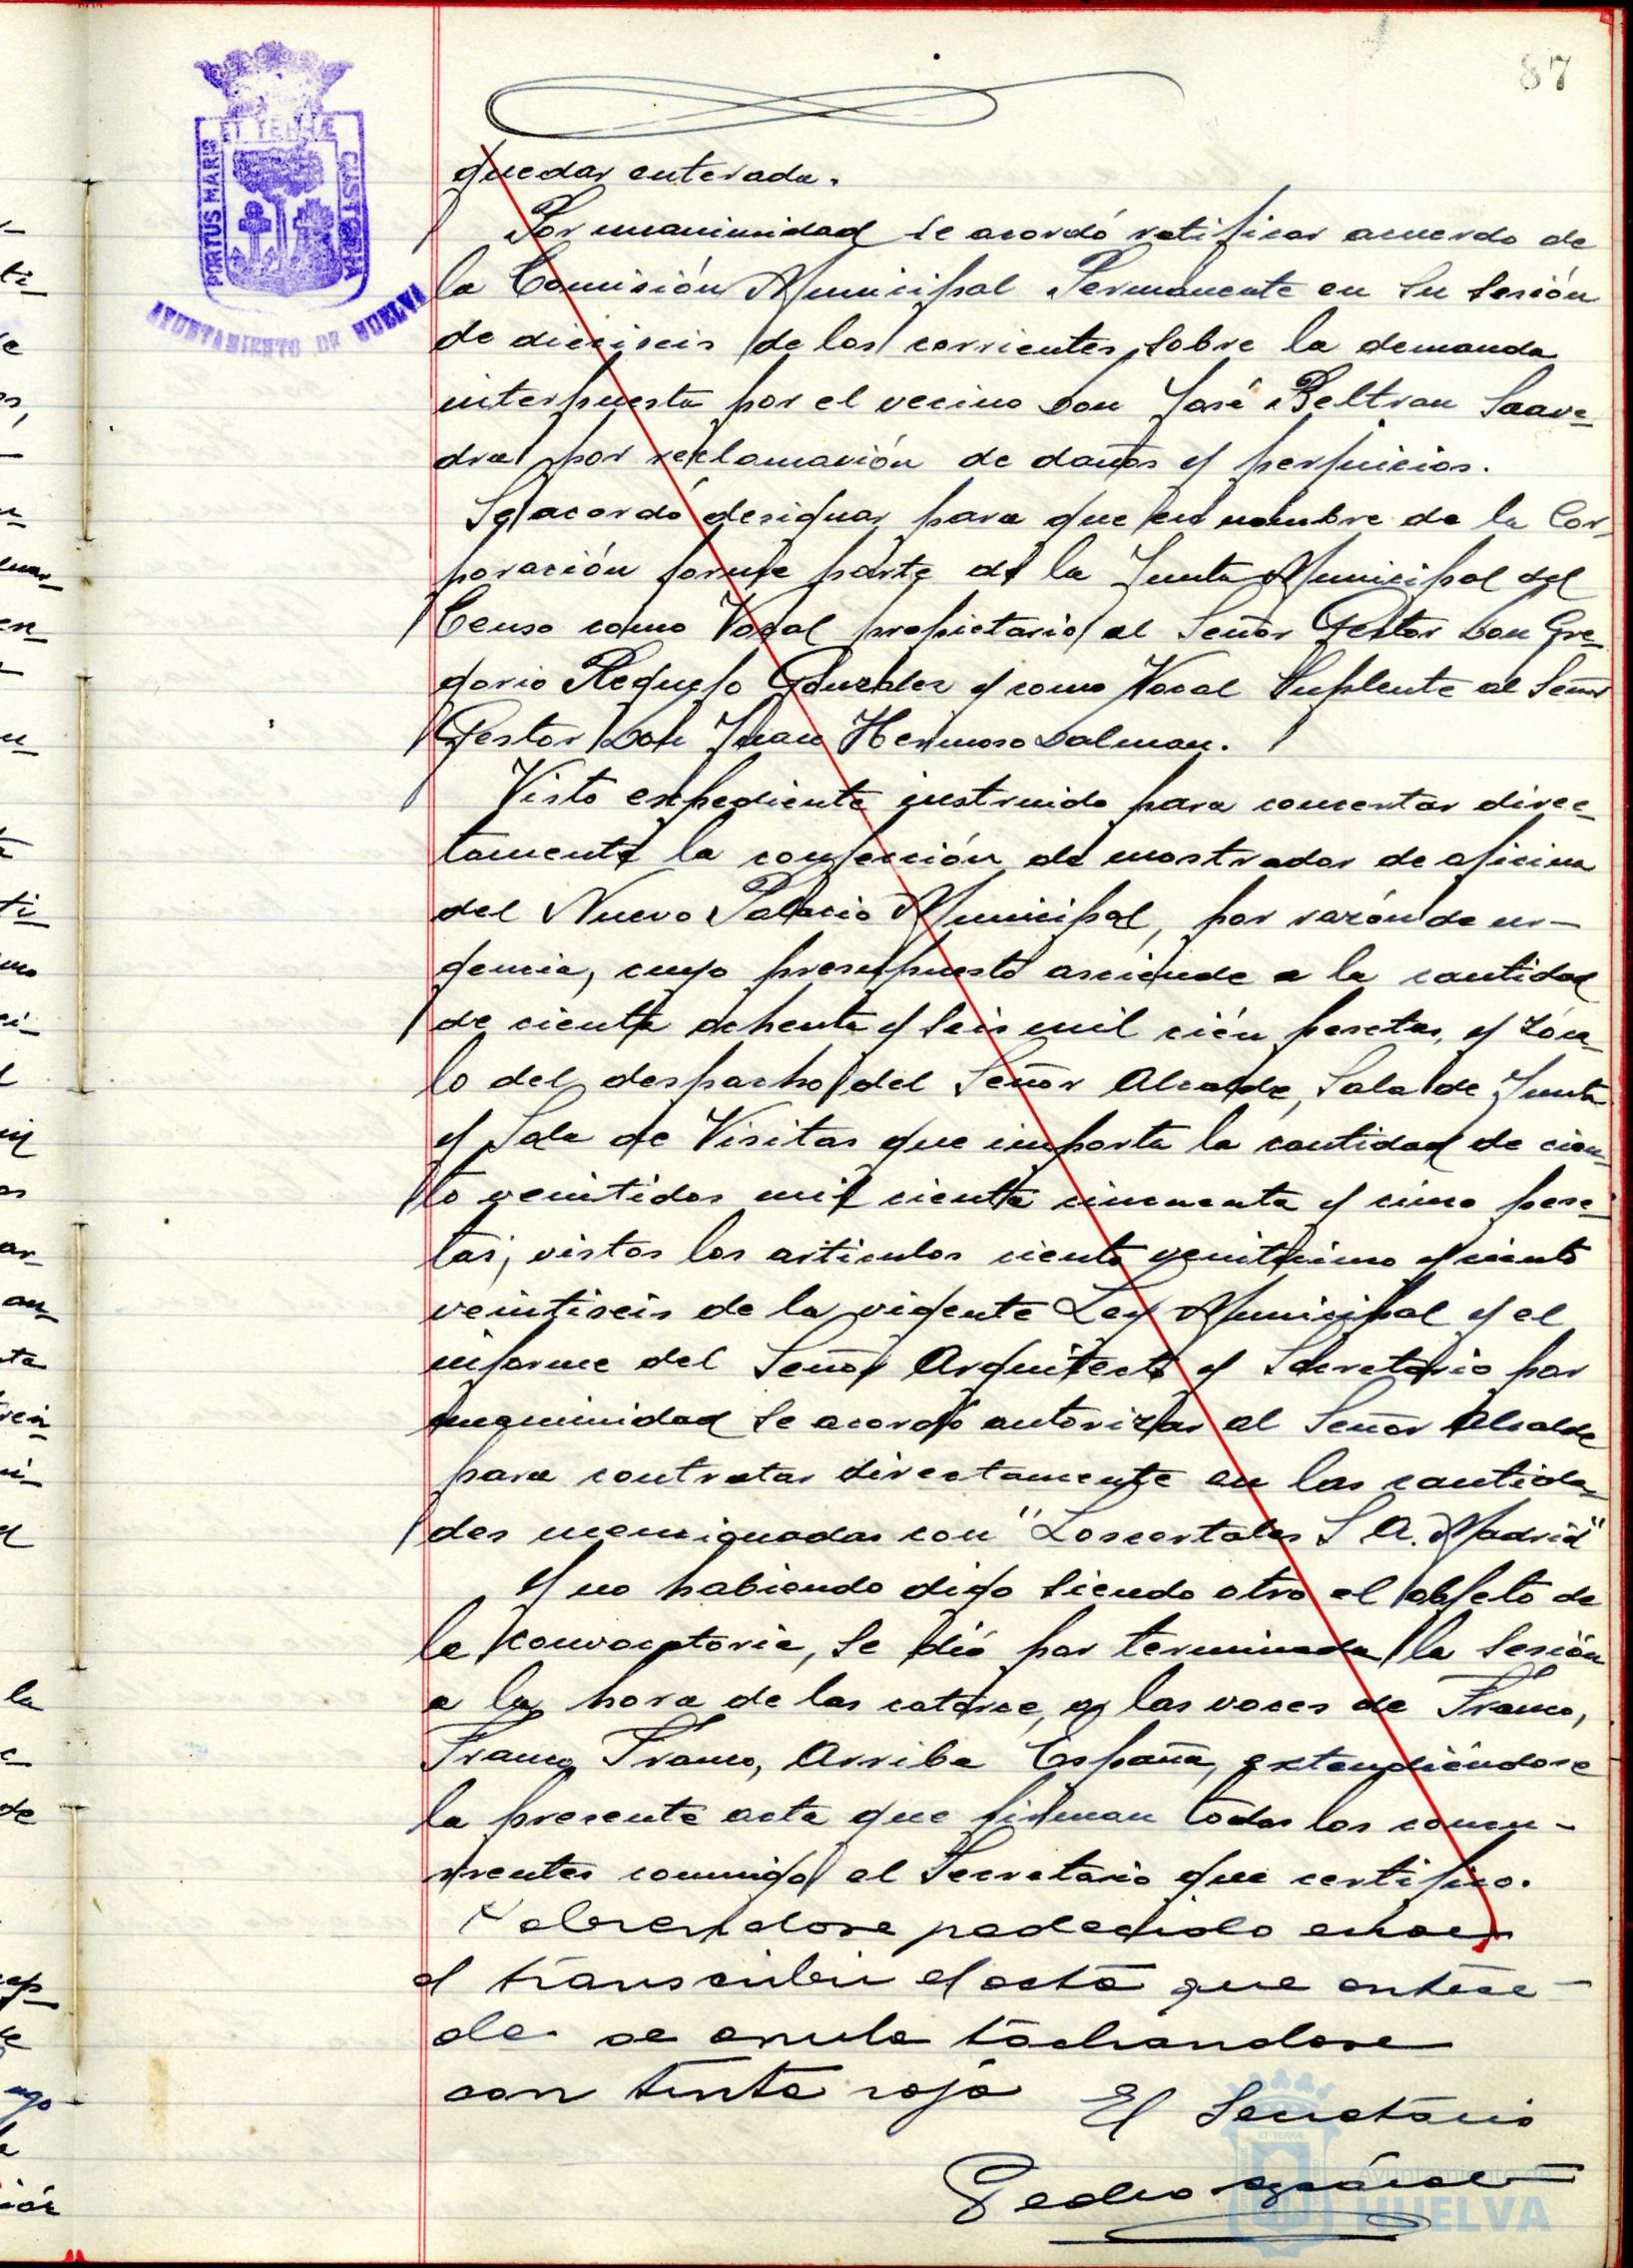 87
PORTUS MARIS ET TERRÆ CUSTODIA
AYUNTAMIENTO DE HUELVA
quedar enterada.
Por unanimidad se acordó ratificar acuerdo de
la Comisión Municipal Permanente en su sesión
de dieciseis de los corrientes, sobre la demanda
interpuesta por el vecino Don José Beltran Saave-
dra por reclamación de daños y perjuicios.
Se acordó designar para que en nombre de la Cor-
poración forme parte de la Junta Municipal del
Censo como Vocal propietario al Señor Gestor Don Gre-
gorio Requejo Gonzalez y como Vocal Suplente al Señor
Gestor Don Juan Hermoso Dalman.
Visto expediente instruido para concertar direc-
tamente la confección de mostrador de oficina
del Nuevo Palacio Municipal, por razón de ur-
gencia, cuyo presupuesto asciende a la cantidad
de ciento ochenta y seis mil cién pesetas, y zóca-
lo del despacho del Señor Alcalde, Sala de Junta
y Sala de Visitas que importa la cantidad de cien-
to venitidos mil ciento cincuenta y cinco pese-
tas, vistos los articulos ciento veniticinco y ciento
veintiseis de la vigente Ley Municipal y el
informe del Señor Arquitecto y Secretario por
unanimidad se acordó autorizar al Señor Alcalde
para contratar directamente en las cantida-
des mencionadas con "Loscertales S A. Madrid"
Y no habiendo digo siendo otro el objeto de
la convocatoria, se dió por terminada la sesión
a la hora de las catorce, a las voces de Franco,
Franco, Franco, Arriba España, extendiéndose
la presente acta que firman todos los concu-
rrentes conmigo el Secretario que certifico.
Habiendose padecido error
al transcribir el acta que antece-
de se anula tachandose
con tinta roja El Secretario
Pedro
Ayuntamiento de
HUELVA